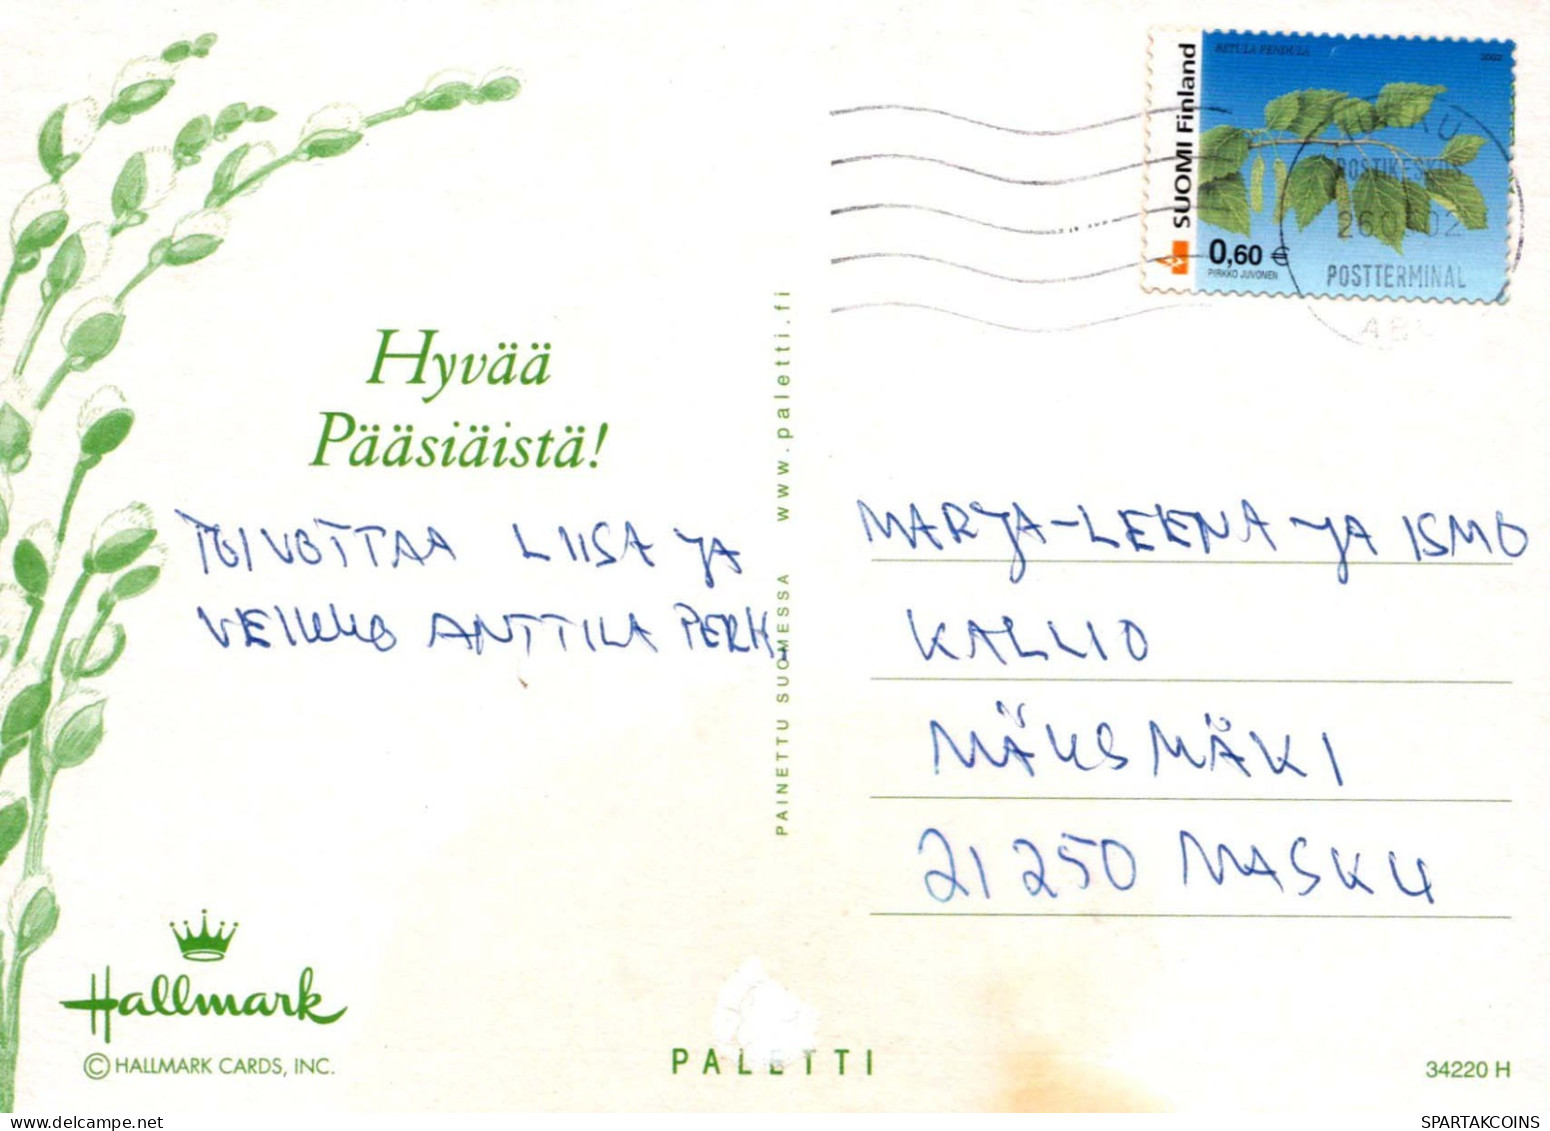 Hyvää
Pääsiäistä!
TOIVOTTAA LIISA JA
VEIKKO ANTTILA PERH.
Hallmark
© HALLMARK CARDS, INC.
PAINETTU SUOMESSA www.paletti.fi
PALETTI
BETULA PENDULA 2002
SUOMI Finland
0,60 €
PIRKKO JUVONEN
TURKU
POSTIKESKUS
POSTTERMINAL
MARJA-LEENA JA ISMO
KALLIO
MÄKSMÄKI
21250 MASKU
34220 H
SPARTAKCOINS